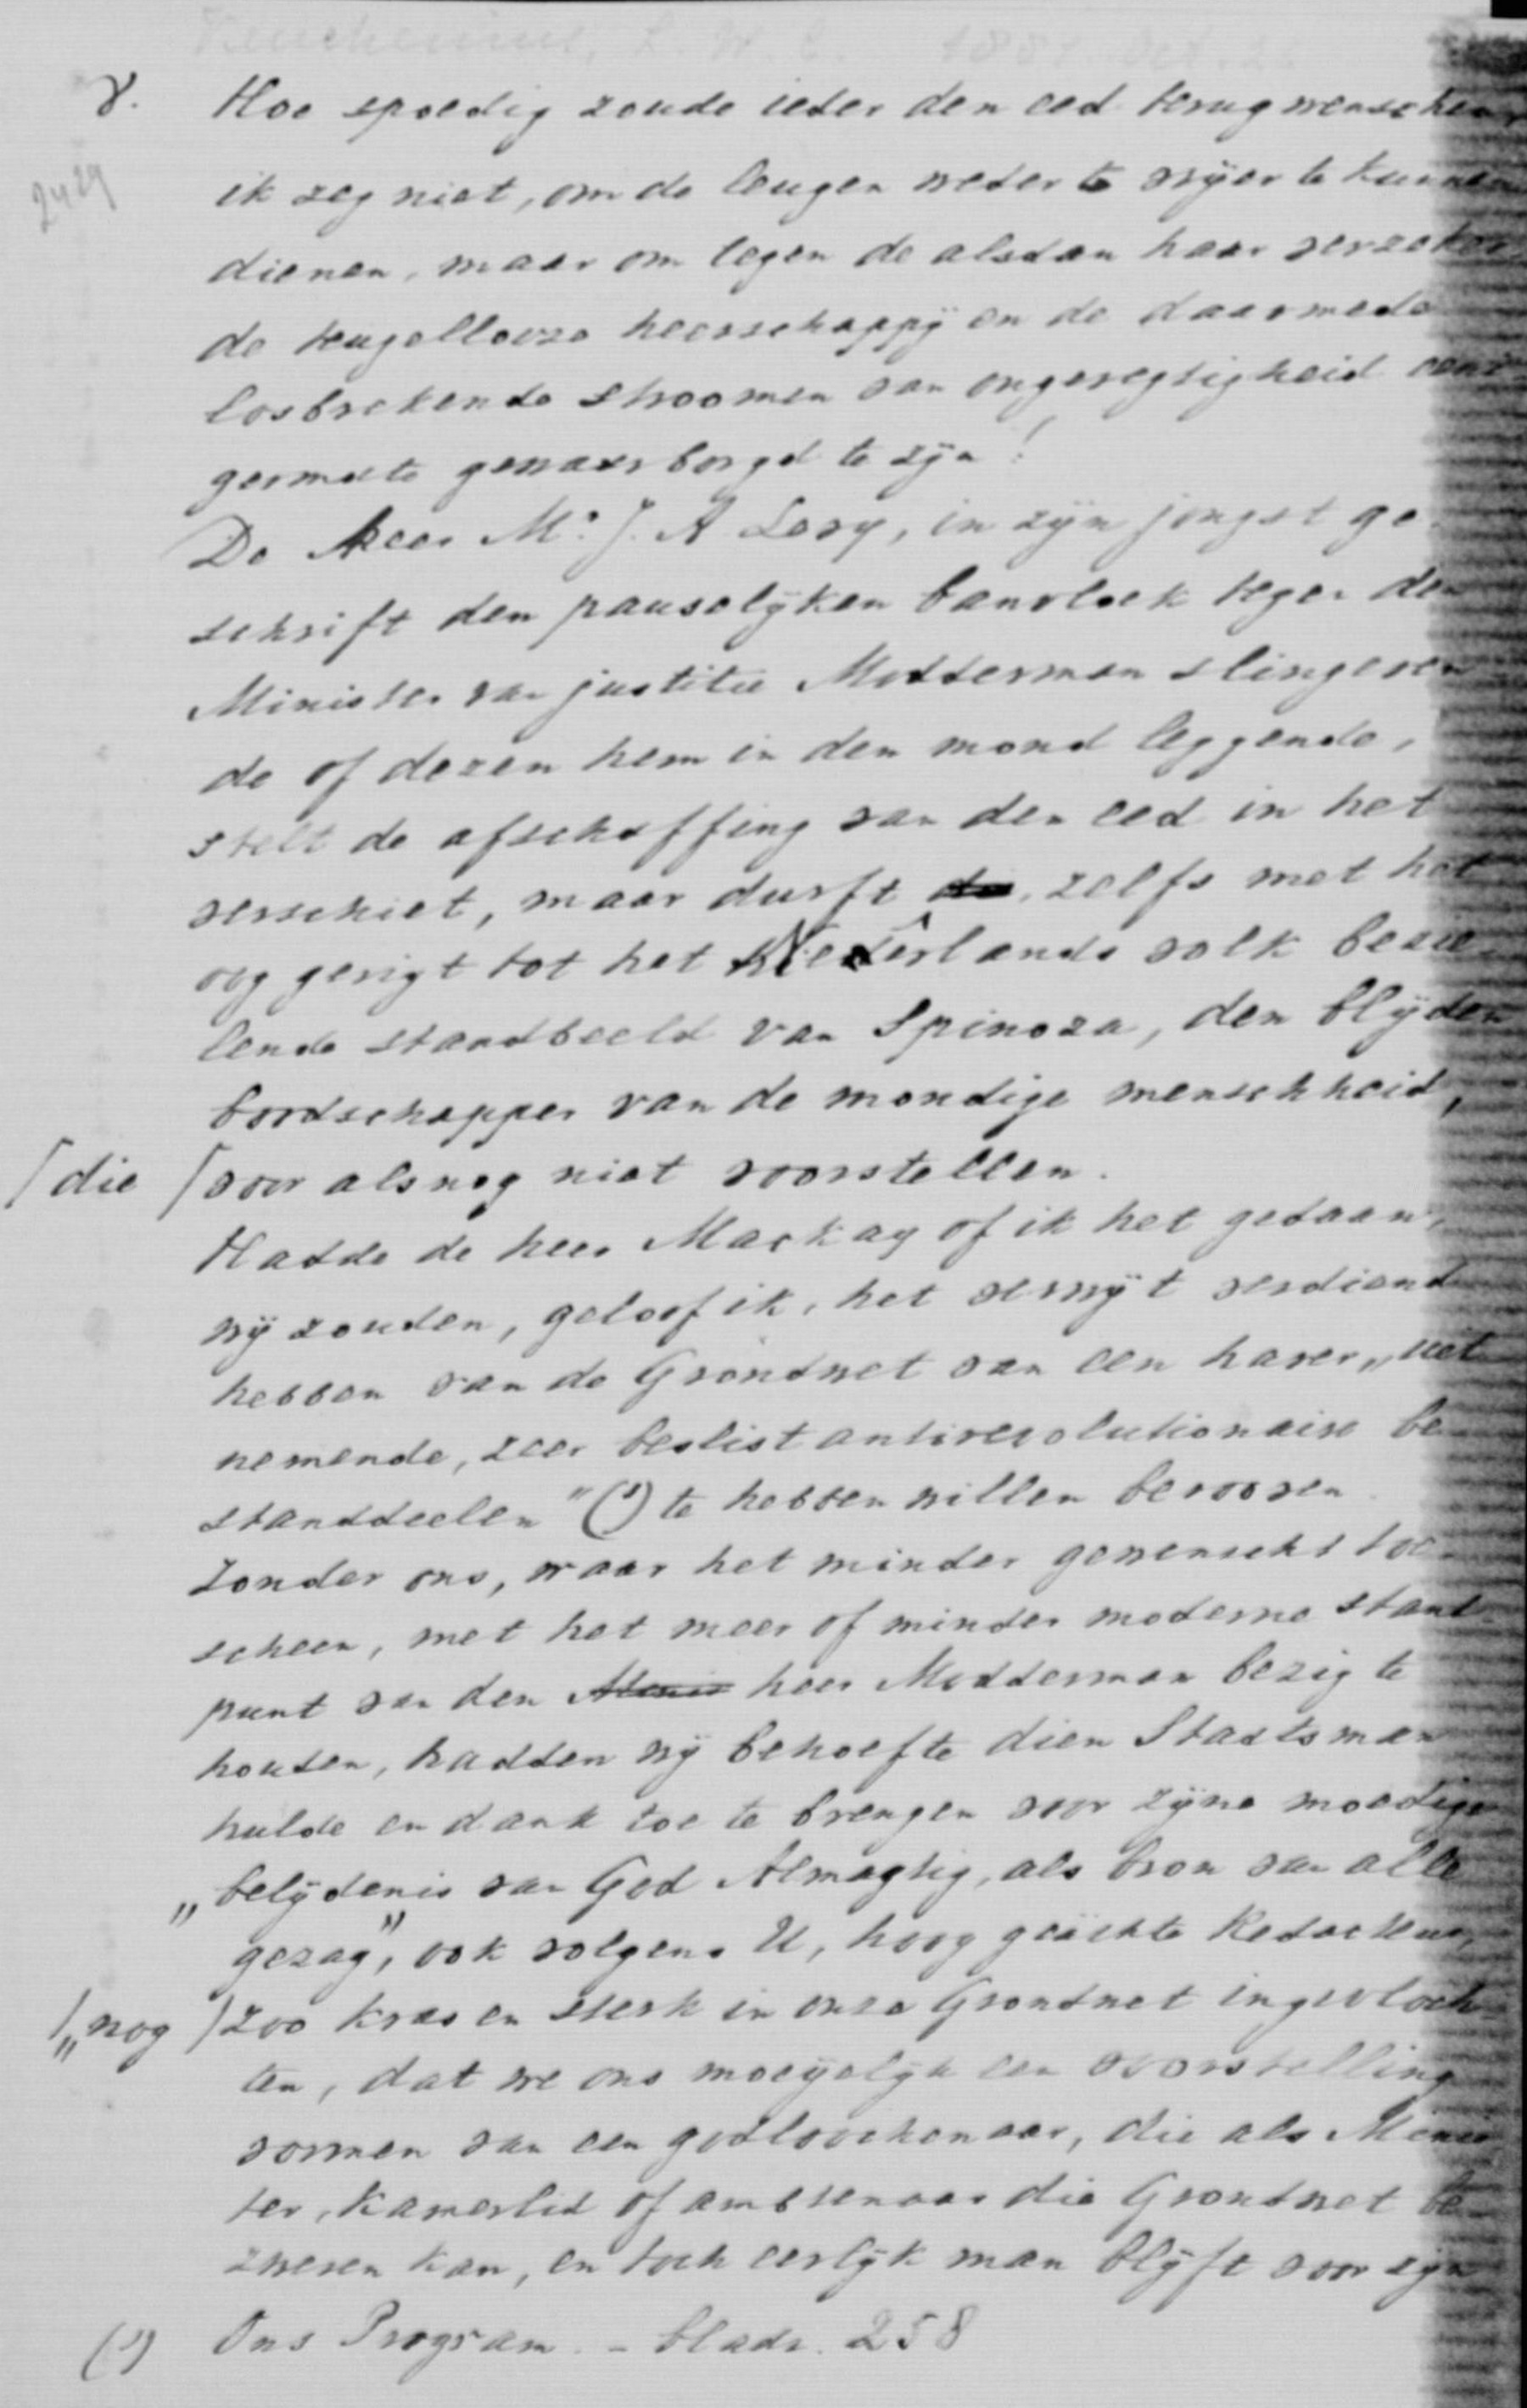 8. Hoe spoedig zoude ieder den eed terugwenschen,
2429
ik zeg niet, om de leugen weder te vrijer te kunnen
dienen, maar om tegen de alsdan haar verzeker
de teugellooze heerschappij en de daarmede
losbrekende stroomen van ongeregtigheid eeni
germate gewaarborgd te zijn!
De heer Mr. J. A Levy, in zijn jongst ge
schrift den pauselijken banvloek tegen den
Minister van justitie Modderman slingeren
de of dezen hem in den mond leggende,
stelt de afschaffing van den eed in het
verschiet, maar durft zelfs met het
oog gerigt tot het Nederlands volk bezie
lende standbeeld van Spinoza, den blijden
boodschapper van de mondige menschheid,
die voor alsnog niet voorstellen.
Hadde de heer Mackay of ik het gedaan,
wij zouden, geloof ik, het verwijt verdiend
hebben van de Grondwet van een harer „uit
nemende, zeer beslist antirevolutionaire be
standdeelen" (1) te hebben willen berooven.
Zonder ons, waar het minder gewenscht toe
scheen, met het meer of minder moderne stand
punt van den heer Modderman bezig te
houden, hadden wij behoefte dien Staatsman
hulde en dank toe te brengen voor zijne moedige
„belijdenis van God Almagtig, als bron van alle
gezag", ook volgens U, hoog geächte Redacteur,
„nog zoo kras en sterk in onze Grondwet ingevloch
ten, dat we ons moeijelijk een voorstelling
vormen van een godloochenaar, die als Minis
ter, Kamerlid of ambtenaar die Grondwet be
zweren kan, en toch eerlijk man blijft voor zijn
(1) Ons Program. – bladz. 258